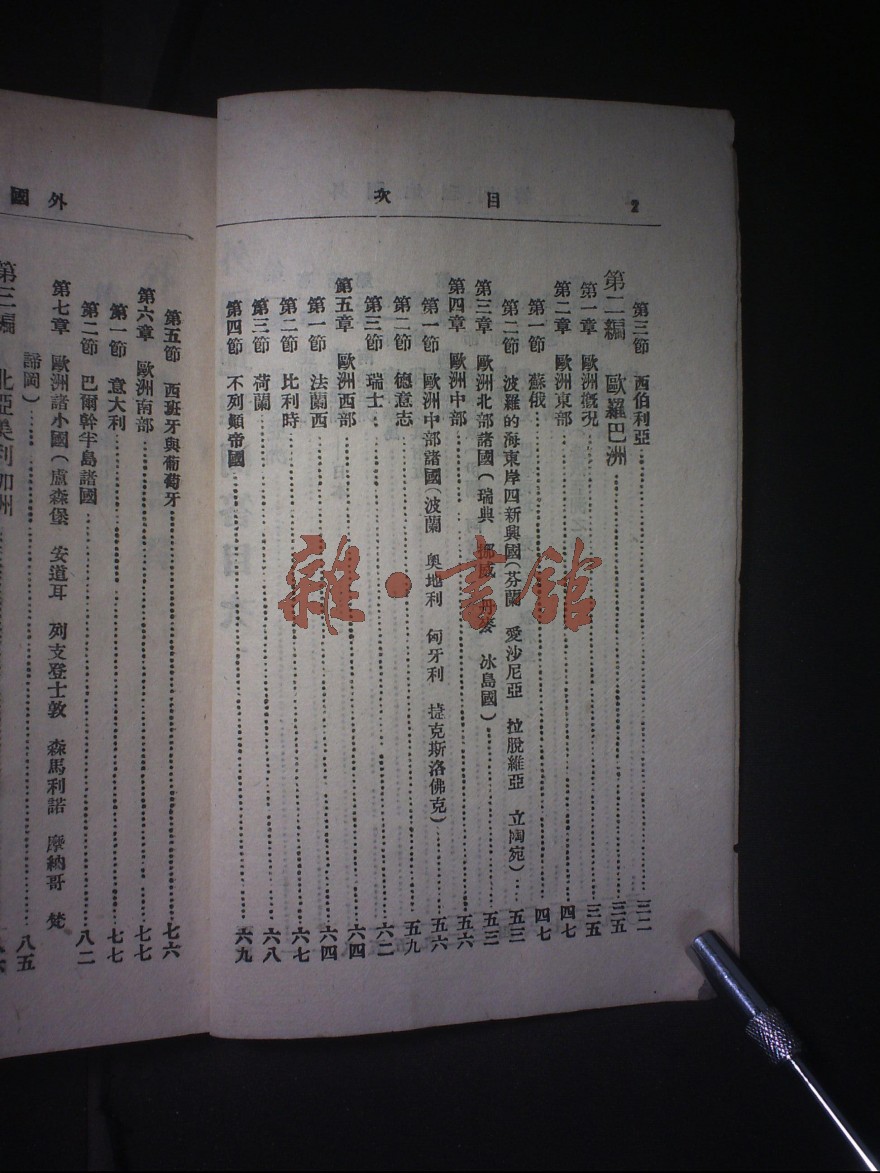 2 目次
第三節 西伯利亞 三二
第二編 歐羅巴洲 三五
第一章 歐洲概況 三五
第二章 歐洲東部 四七
第一節 蘇俄 四七
第二節 波羅的海東岸四新興國(芬蘭 愛沙尼亞 拉脫維亞 立陶宛) 五三
第三章 歐洲北部諸國(瑞典 挪威 丹麥 冰島國) 五三
第四章 歐洲中部 五六
第一節 歐洲中部諸國(波蘭 奧地利 匈牙利 捷克斯洛佛克) 五六
第二節 德意志 五九
第三節 瑞士 六二
第五章 歐洲西部 六四
第一節 法蘭西 六四
第二節 比利時 六七
第三節 荷蘭 六八
第四節 不列顛帝國 六九
外國
第五節 西班牙與葡萄牙 七六
第六章 歐洲南部 七七
第一節 意大利 七七
第二節 巴爾幹半島諸國 八二
第七章 歐洲諸小國(盧森堡 安道耳 列支登士敦 森馬利諾 摩納哥 梵
諦岡) 八五
第三編 北亞美利加洲
雜·書館